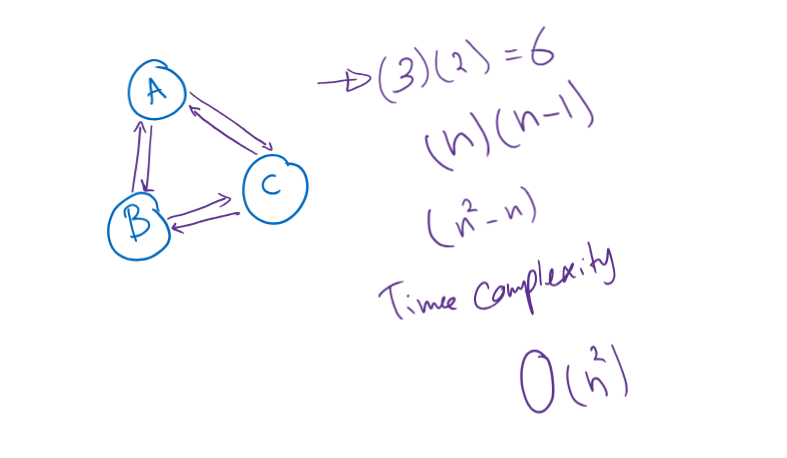 A
B
C
(3)(2) = 6
(n)(n-1)
(n²-n)
Time complexity
O(n²)